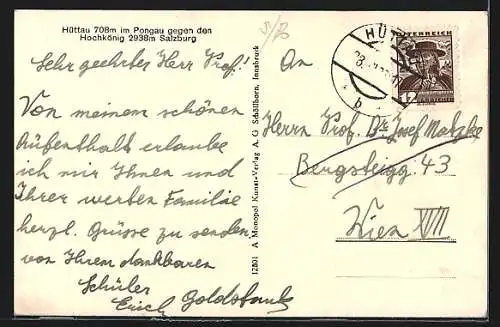 Hüttau 708m im Pongau gegen den
Hochkönig 2938m Salzburg
Sehr geehrter Herr Prof!
Von meinem schönen
Aufenthalt erlaube
ich mir Ihnen und
Ihrer werten Familie
herzl. Grüsse zu senden.
von Ihrem dankbaren
Schüler
Erich
12501 A Monopol Kunst-Verlag A. G. Schöllhorn, Innsbruck
HÜT
b
ÖSTERREICH
12
An
Herrn Prof. Dr Josef
Bergsteigg. 43
Wien XVII